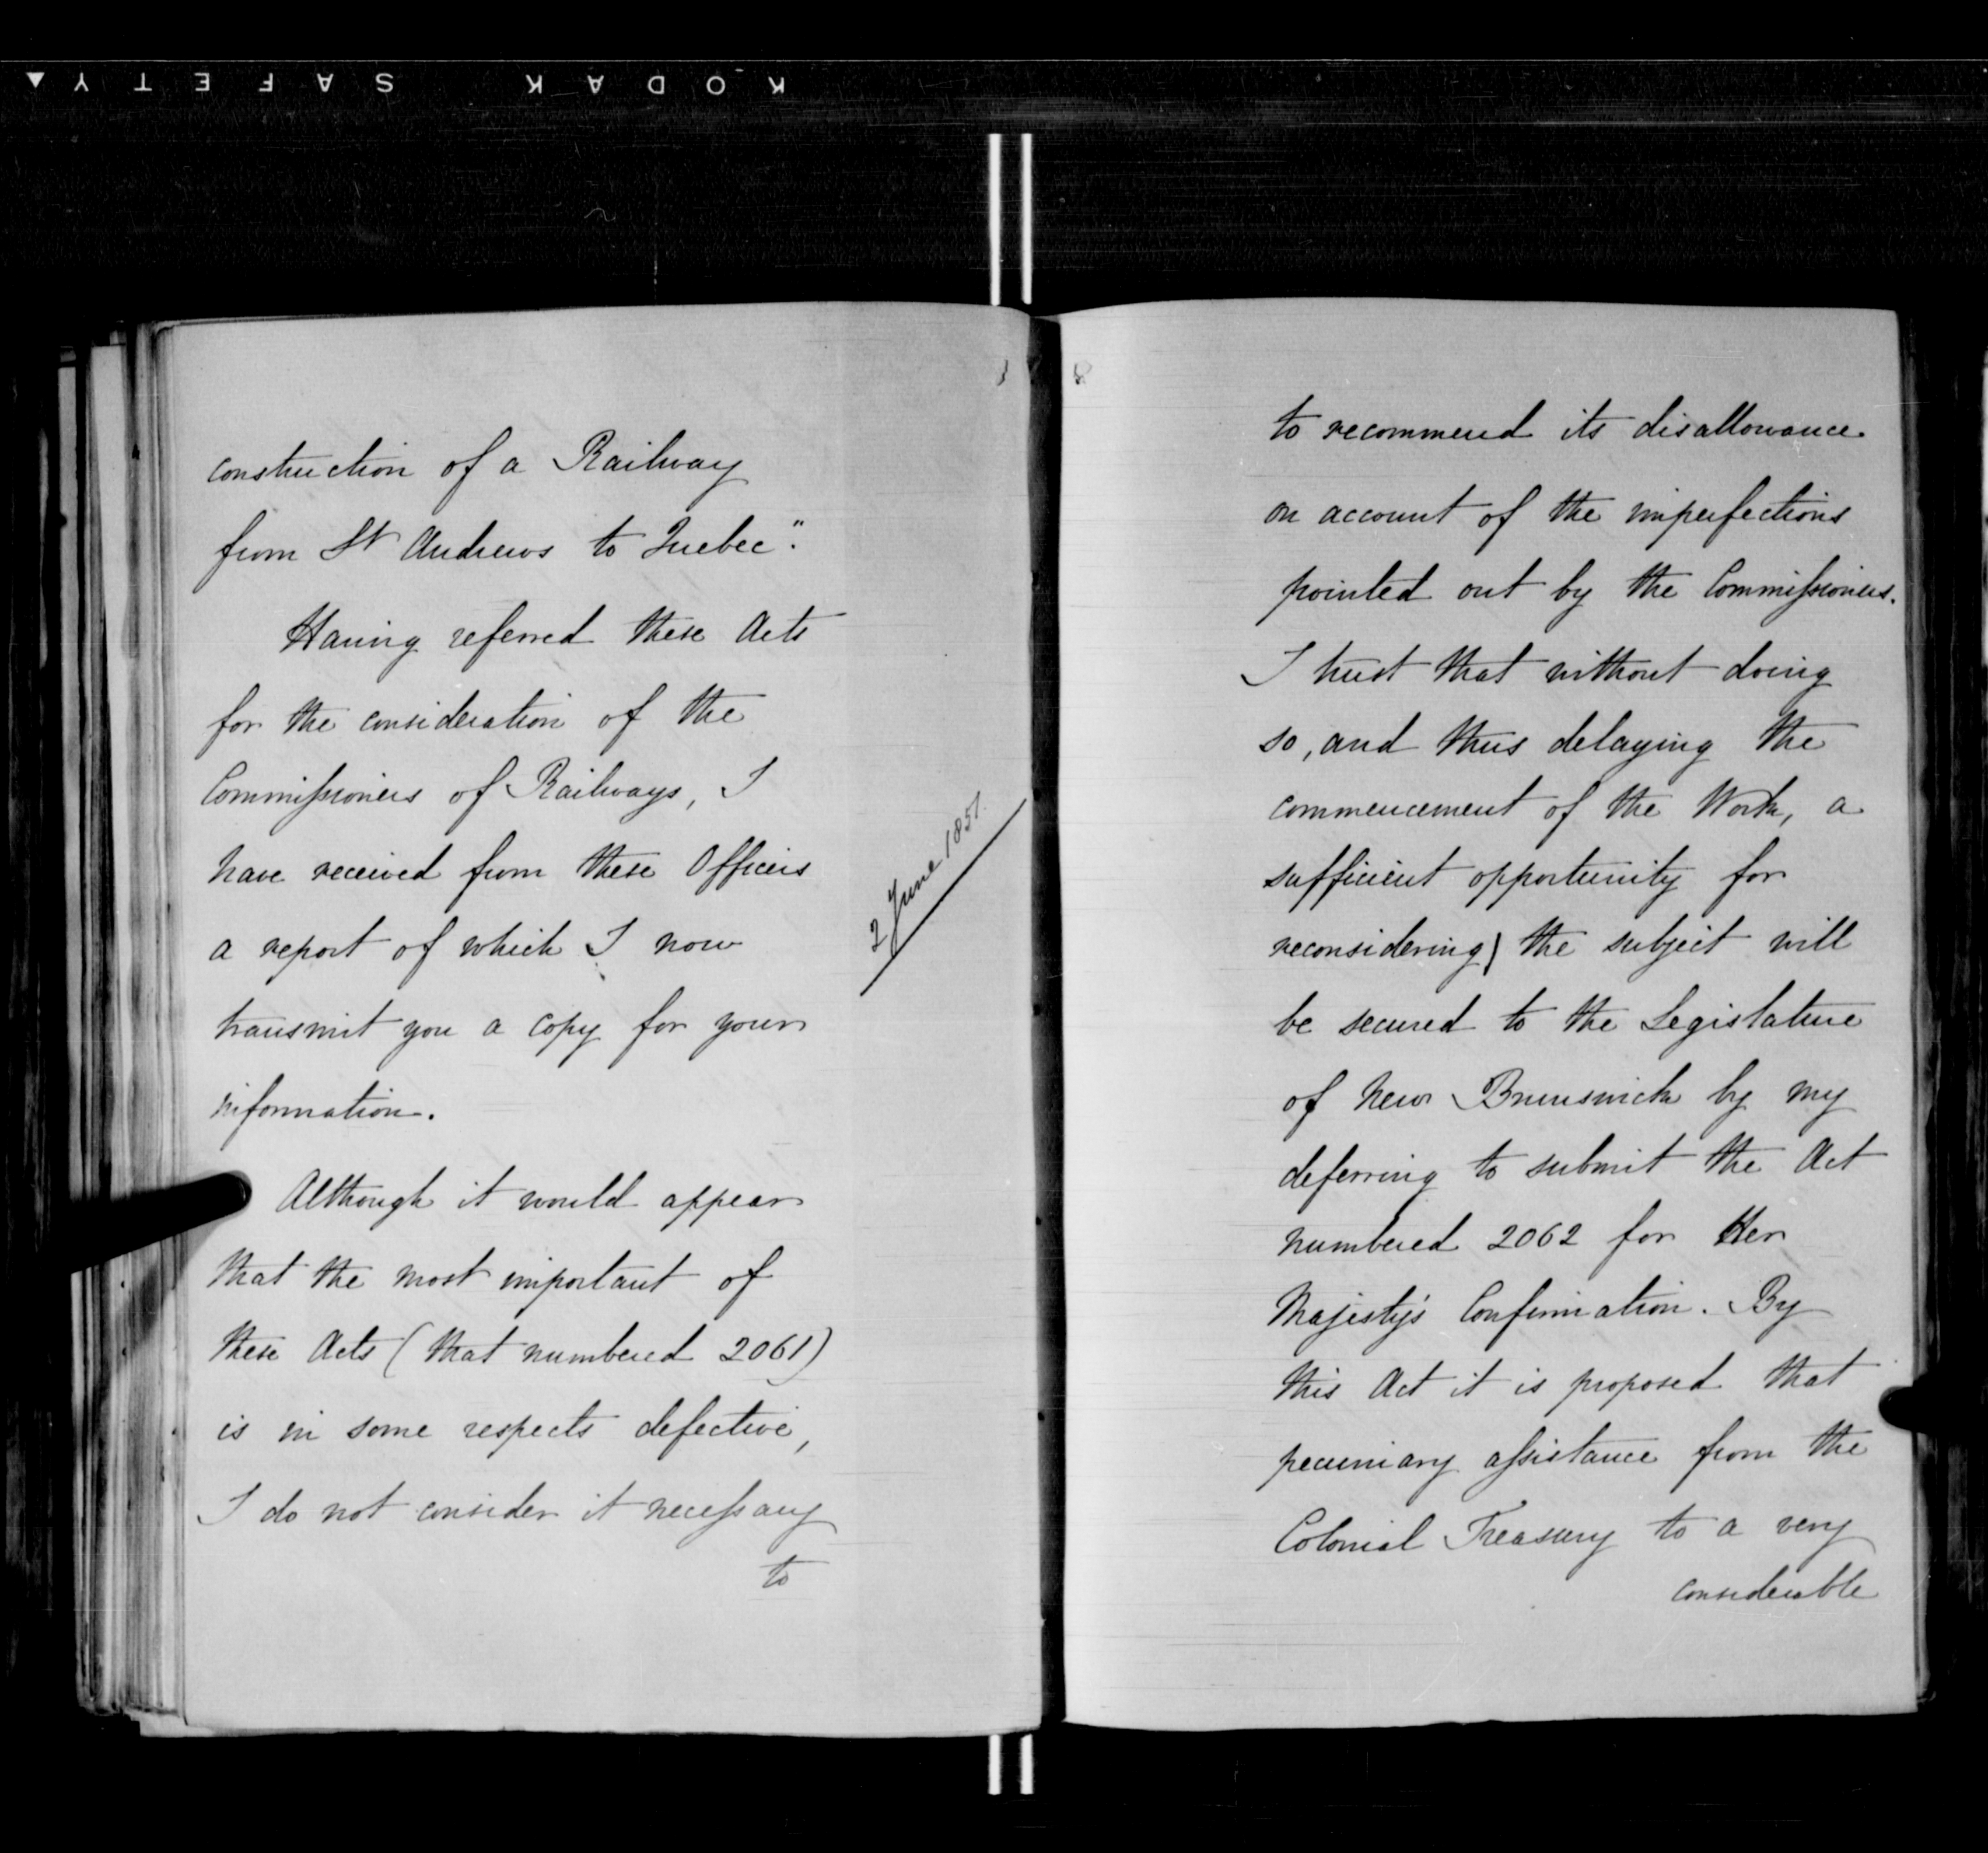 KODAK SAFETY
construction of a Railway
from St Andrews to Quebec".
Having referred these Acts
for the consideration of the
Commissioners of Railways, I
have received from these Officers
a report of which I now
transmit you a copy for your
information.
2 June 1851.
Although it would appear
that the most important of
these Acts (that numbered 2061)
is in some respects defective,
I do not consider it necessary
to
to recommend its disallowance
on account of the imperfections
pointed out by the Commissioners.
I trust that without doing
so, and thus delaying the
commencement of the Work, a
sufficient opportunity for
reconsidering) the subject will
be secured to the Legislature
of New Brunswick by my
deferring to submit the Act
numbered 2062 for Her
Majesty's Confirmation. By
this Act it is proposed that
pecuniary assistance from the
Colonial Treasury to a very
considerable